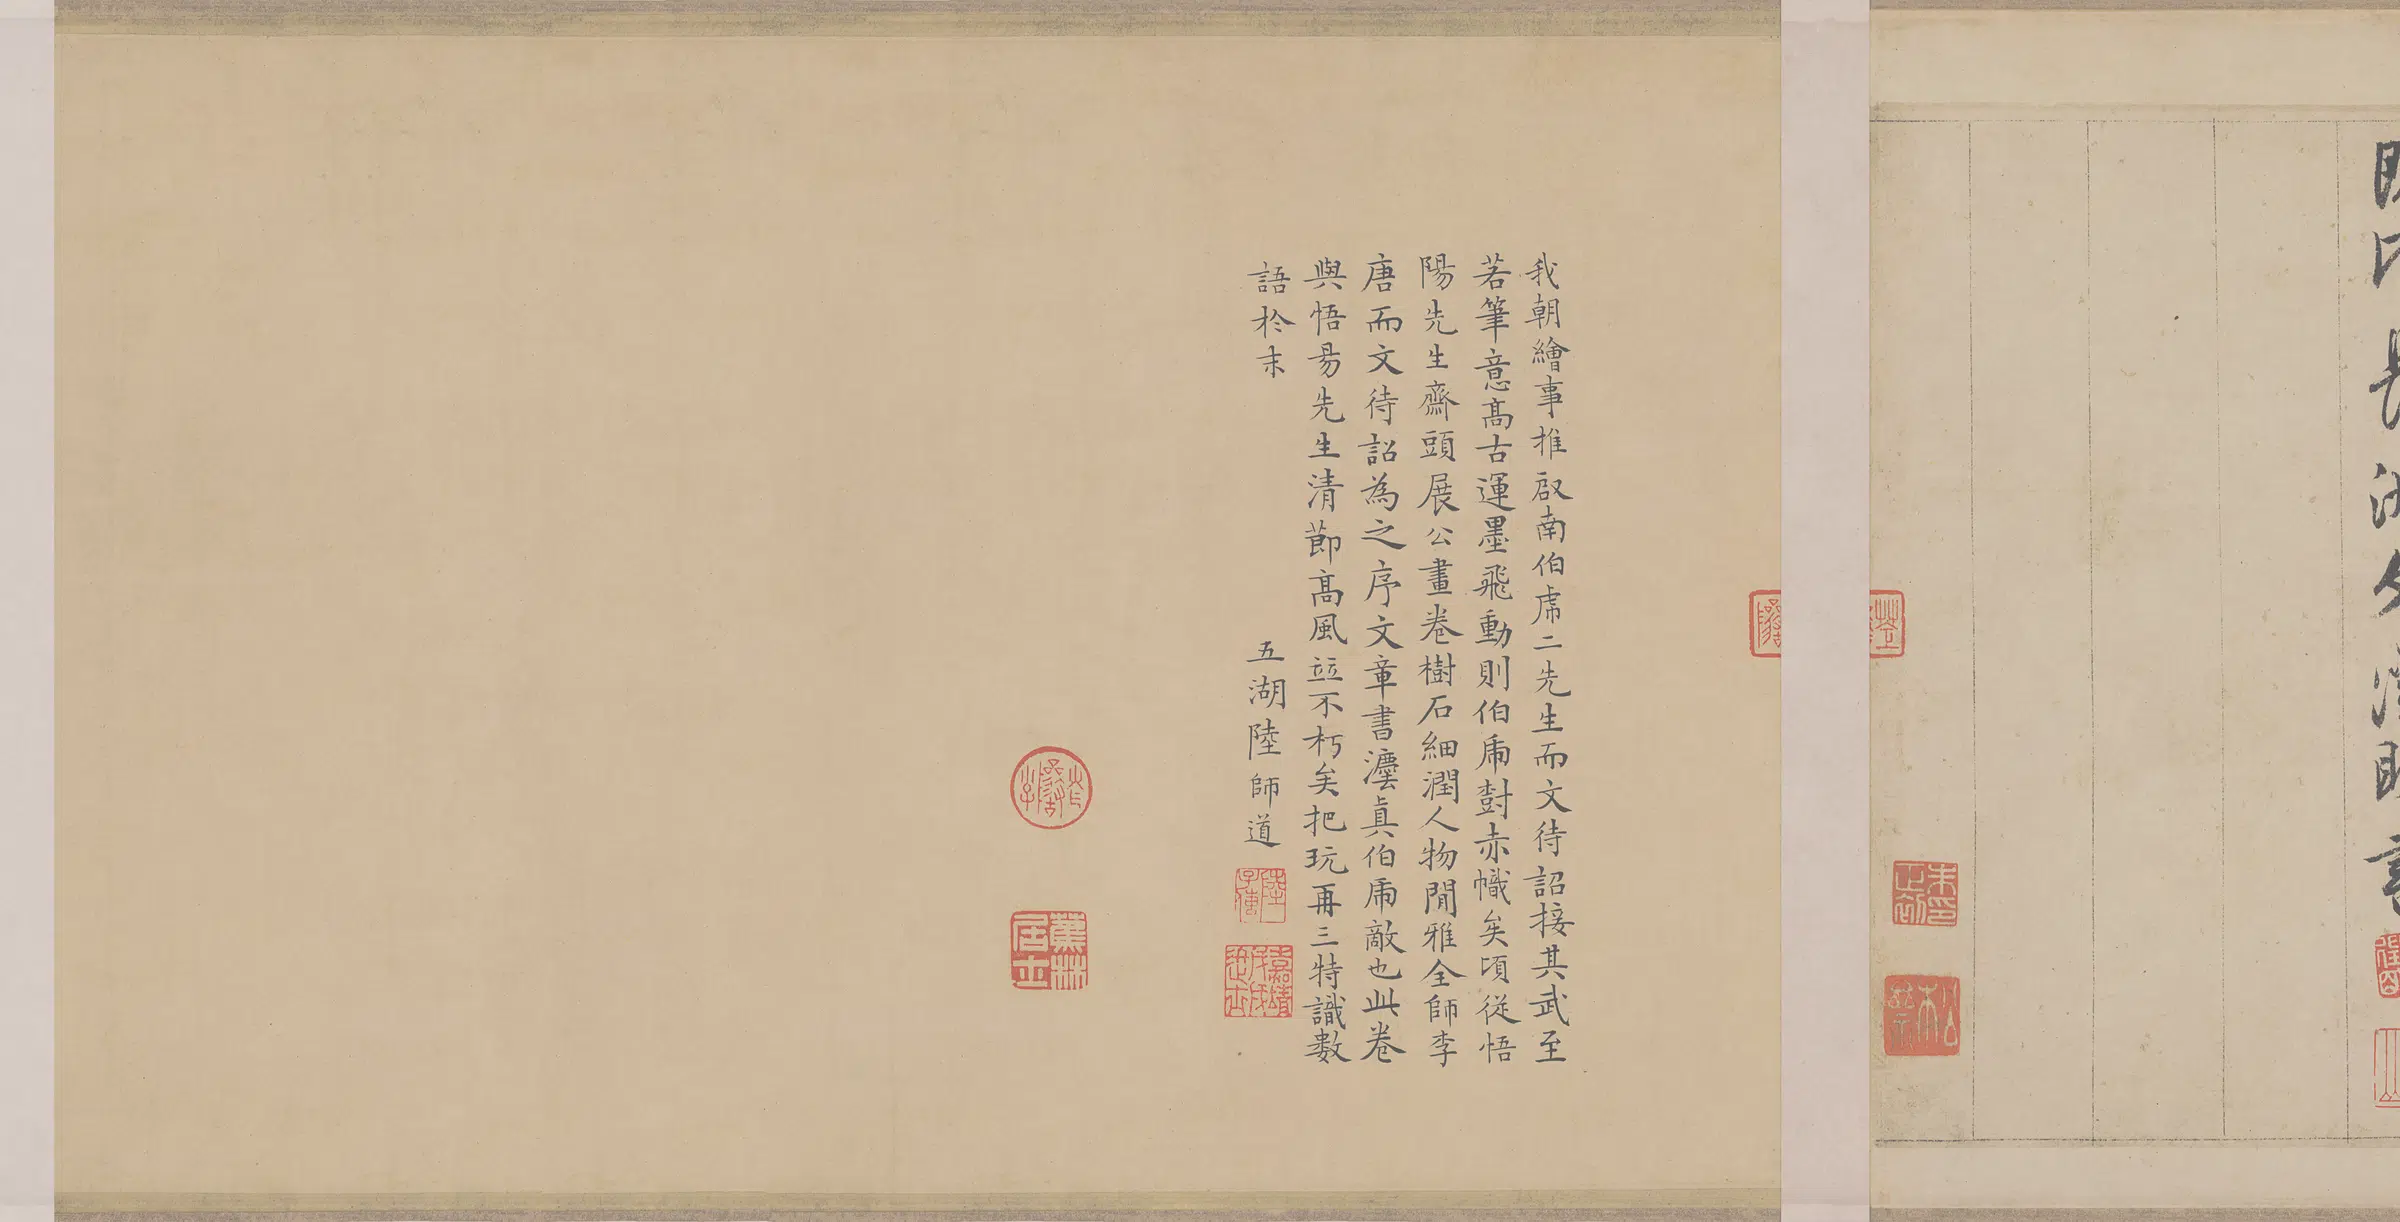 我朝繪事推啟南伯虎二先生而文待詔接其武至
若筆意高古運墨飛動則伯虎尌赤幟矣頃從悟
陽先生齋頭展公畫卷樹石細潤人物閒雅全師李
唐而文待詔為之序文章書灋真伯虎敵也此卷
與悟昜先生清節高風竝不朽矣把玩再三特識數
語於末
五湖陸師道
陸子傳
嘉靖戊戌進士
蕉林居士